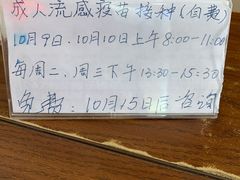 成人流感疫苗接种(自费)
10月9日、10月10日上午8:00-11:00
每周二、周三下午13:30-15:30
免费：10月15日后咨询